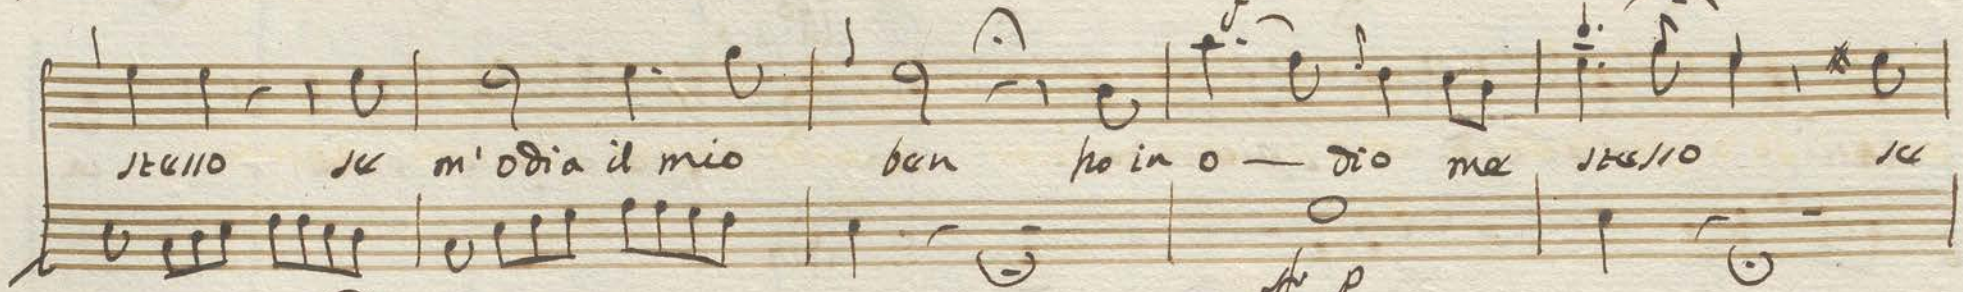 stesso se m'odia il mio ben ho in o — dio me stesso se
p